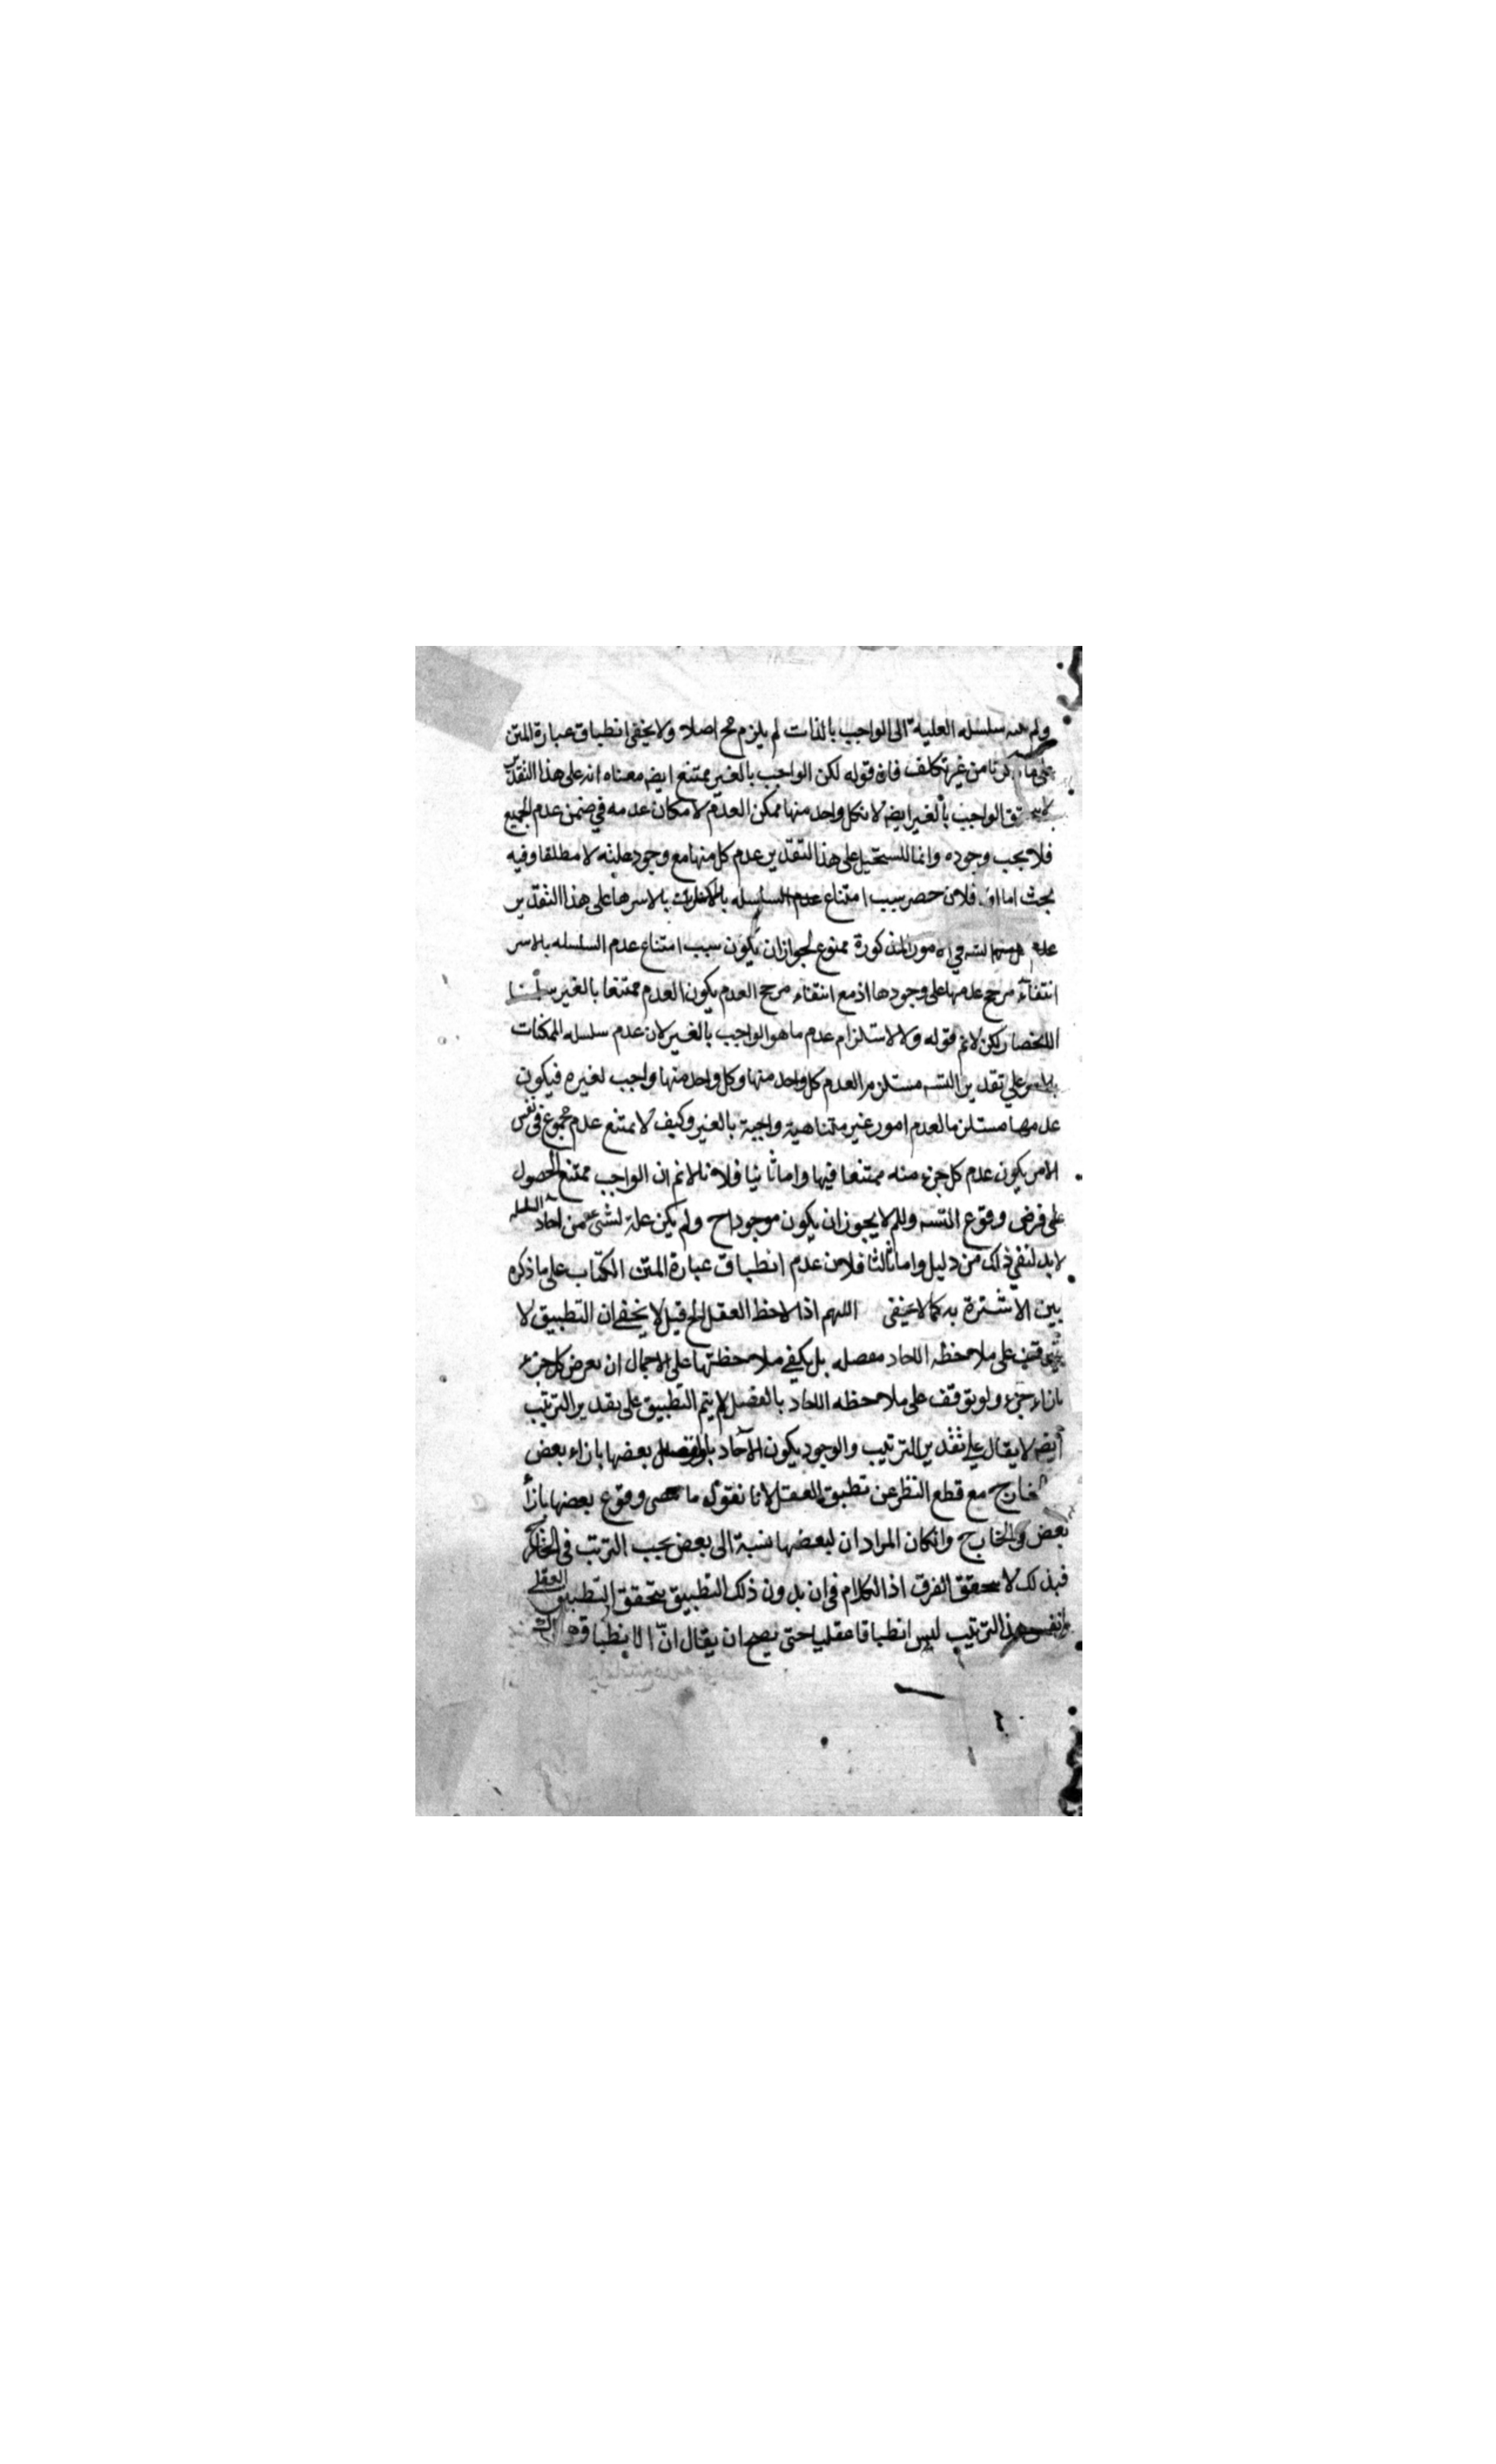 ولم سلسله العلية الى الواجب بالذات لم يلزم مح اصلا ولا يخفى انطباق عبارة المتن
على ما من غير تكلف فان قوله لكن الواجب بالغير ممتنع ايضه معناه انه على هذا التقدير
الواجب بالغير ايضه لان كل واحد منها ممكن العدم لامكان عدمه في ضمن عدم الجميع
فلا يجب وجوده وانما المستحيل على هذا التقدير عدم كل منها مع وجود علته لا مطلقا وفيه
بحث اما فلان حصر سبب امتناع عدم السلسله بالاسرها على هذا التقدير
عدم في الامور المذكورة ممنوع لجواز ان يكون سبب امتناع عدم السلسله بالاسر
انتفاء مرجح عدمها على وجودها اذ مع انتفاء مرجح العدم يكون العدم ممتنعا بالغير
الانحصار لكن لانم قوله ولا لاستلزام عدم ما هو الواجب بالغير لان عدم سلسله الممكنات
على تقدير التسه مستلزم العدم كل واحد منها وكل واحد منها واجب لغيره فيكون
عدمها مستلزما لعدم امور غير متناهية واجبة بالغير وكيف لا يمتنع عدم مجموع في نفس
الامر يكون عدم كل جزء منه ممتنعا فيها واما ثانيا فلانا لانم ان الواجب ممتنع الحصول
على فرض وقوع التسه ولم لا يجوز ان يكون موجودا ح ولم يكن علة لشئ من احاد السلسله
لا بد لنفي ذلك من دليل واما ثالثا فلان عدم انطباق عبارة المتن الكتاب على ما ذكره
بين الاسترة به كما لا يخفى اللهم اذا لاحظ العقل الخ قيل لا يخفى ان التطبيق لا
يتوقف على ملاحظه الاحاد مفصله بل يكفي ملاحظتها على الاجمال ان يعرض كل جزء
بازاء جزء ولو توقف على ملاحظه الاحاد بالفصل لم يتم التطبيق على تقدير الترتيب
ايضه لا يقال على تقدير الترتيب والوجود يكون الآحاد بعضها بازاء بعض
الخارج مع قطع النظر عن تطبيق العقل لانا نقول ما معنى وقوع بعضها بازاء
بعض في الخارج وان كان المراد ان لبعضها نسبة الى بعض يجب الترتب في الخارج
فبذلك لا يتحقق الفرق اذ الكلام في ان بدون ذلك التطبيق يتحقق التطبيق العقلي
هذا الترتيب ليس انطباقا عقليا حتى يصح ان يقال ان الانطباق